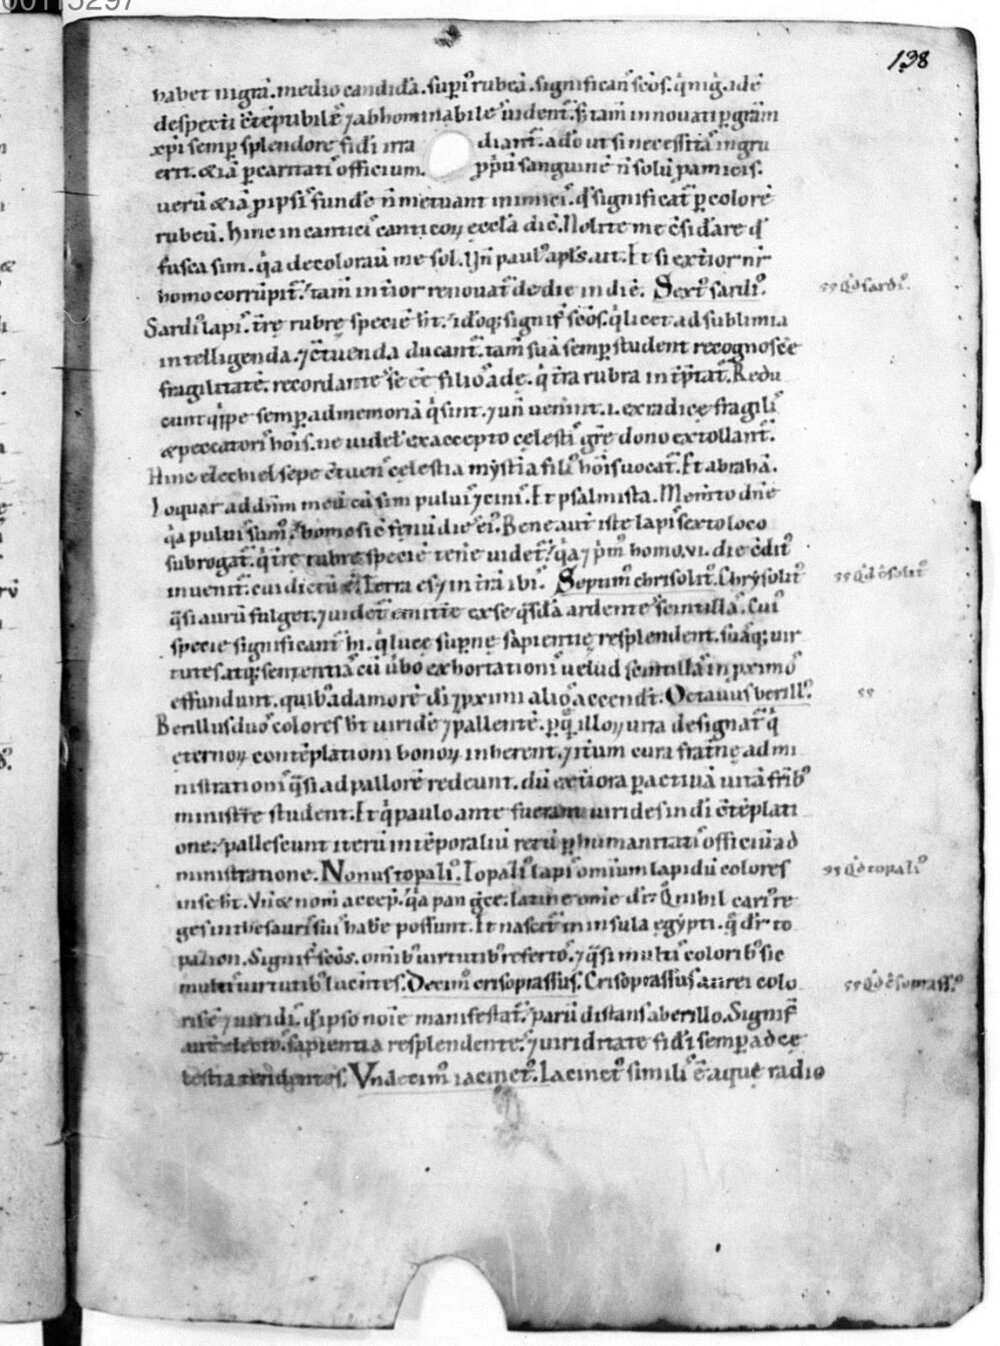 138
habet nigrā. medio candidā. supi᷒ rubeā. significan̄ scōs. q̇ nig̣. ide᷒
despecti ēt ꝯtēptibile᷒ ⁊ abhominabile᷒ uident᷑. s; tam̄ innouati ꝑ grām
xp̄i semꝑ splendore fidi irra diant᷑. adō ut si necessitā᷒ ingru
erit. & iā ꝑ caritati᷒ officium. ꝓpū sanguinē n̄ solū ꝓ amicis.
uerū & iā ꝓ ipsi᷒ fundē n̄ metuant inimici᷒. qd̄ significat᷑ ꝑ colorē
rubeū. Hinc in cantici᷒ canticoꝝ ęccl̄a dic̄. Nolite me ꝯsid̄are qd̄
fusca sim. q̇a decolorauit me sol. Vn̄ paul᷒ apl̄s. ait. Et si exterior nr̄
homo corrūpit᷑. tam̄ interior renouat᷑ de die in diē. Sext᷒ sardi᷒.
Sardi᷒ lapi᷒. trę rubrę speciē hт̄. idoq; signif̄ scōs. q̇ licet ad sublimia
intelligenda. ⁊ ꝯtuenda ducant᷑. tam̄ suā semꝑ student recognoscē
fragilitatē. recordante᷒ se ēē filio᷒ adę. q̇ tr̄a rubra int̄ꝑtat᷑. Redu
cunt q̇ppe semꝑ ad memoriā q̇ sint. ⁊ un̄ uenīnt. i. ex radicę fragili᷒
& peccatori᷒ hois. ne uidel᷒ ex accepto cęlesti᷒ grę dono extollant᷑.
Hinc ezechiel sepe ꝯtuen᷒ cęlestia mystia fili᷒ hoīs uocat᷑. Et abrahā.
Loquar ad dn̄m meū cū sim pului᷒ ⁊ cini᷒. Et psalmista. Memto dn̄e
q̇a pului᷒ sum᷒. homo sic̄ fęnū die᷒ ei᷒. Bene aut̄ iste lapi᷒ sexto loco
subrogat᷑. q̇ tr̄ę rubrę speciē tenē uidet᷑. q̇a ⁊ p̄m᷒ homo. vi. die ꝯdit᷒
inuenit᷑. cui dictū ē. Terra es ⁊ in trā ibi᷒. Septim᷒ chrisolit᷒. Chrysolit᷒
q̄si aurū fulget. ⁊ uidet᷑ emittē ex se q̄sdā ardente᷒ scintilla᷒. Cui᷒
specie significant᷑ hi. q̇ luce supnę sapientię resplendent. suāq; uir
tutes. atq; sententiā᷒ cū ūbo exhortationi᷒ uelud scintilla᷒ in ꝓximo᷒
effundunt. quib᷒ ad amorē di᷒ ⁊ ꝓximi alio᷒ accendт̄. Octauus berill᷒.
Berillus duo᷒ colores hт̄ uiridē ⁊ pallentē. ꝑ q̇ illoꝝ uita designat᷑ q̇
ęternoꝝ contēplationi bonoꝝ inherent. ⁊ it̄um cura frat̄nę admi
nistrationi᷒ q̄si ad pallorē redeunt. dū ext̄iora ꝑ actiuā uitā frīb᷒
ministr̄e student. Et q̇ paulo ante fuerant uirides in di᷒ ꝯtēplati
one. pallescunt iterū in tēporaliū rerū ꝑ humanitati᷒ officiū ad
ministratione. Nonus topali᷒. Topali᷒ lapi᷒ omīum lapidū colores
in se hт̄. Vn̄ & nom̄ accep̄. q̇a pan gc̄e. latine om̄e dr̄. Q nihil cari᷒ re
ges in thesauri᷒ sui᷒ habē possunt. Et nascit᷑ in insula ęgypti. q̄ dr̄ to
pazion. Signif̄ scōs. omīb᷒ uirtutib᷒ referto᷒. ⁊ q̄si multi᷒ colorib᷒ sic
multi᷒ uirtutib᷒ lucentes. Decim᷒ crisoprassus. Crisoprassus aurei colo
ris ē ⁊ uiridi᷒. qd̄ ipso noīe manifestat᷑. parū distans a berillo. Signif̄
aut̄ electo᷒. sapientia resplendente᷒. ⁊ uiriditate fidi semꝑ ad cę
lestia tendentes. Vndecim᷒ iacinct᷒. Iacinct᷒ simili᷒ ē aquę radio
Qd̄ sardi᷒.
Qd̄ c̄solit᷒
Qd̄ topali᷒
Qd̄ c̄soprass᷒.